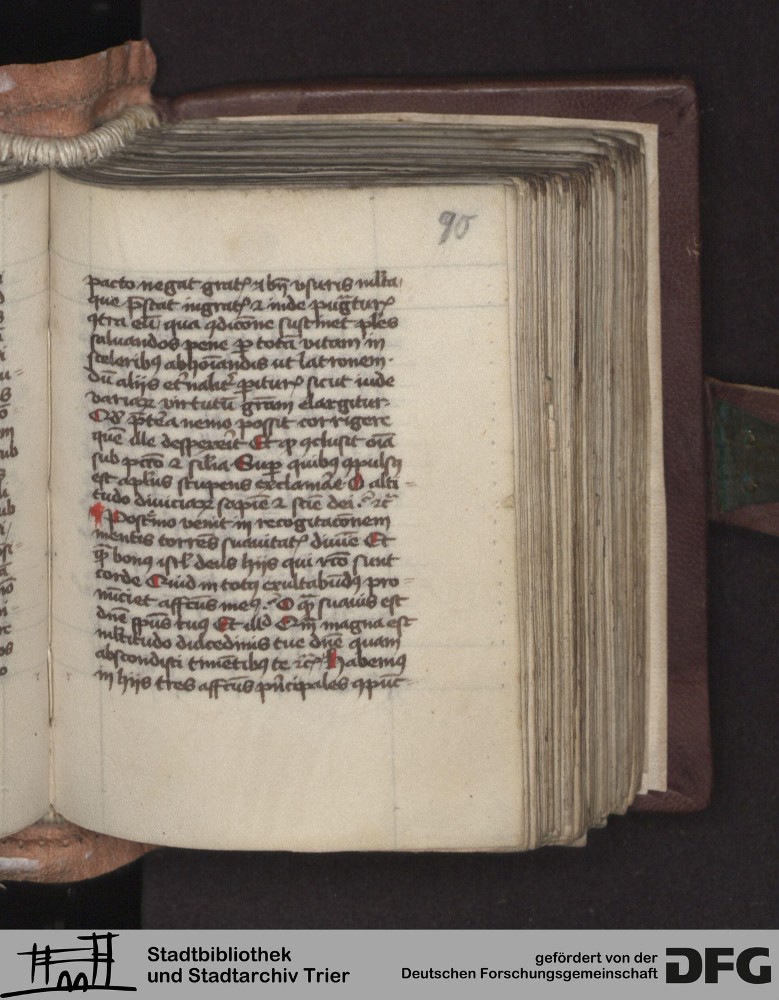 90
pacto negat gratꝭ ⁊ bn̄ vsuris ml̓ta
que p̄stat ingratꝭ ⁊ inde pug̃turꝭ
ꝯtra eū qua ꝯdicōne sustinet ples
saluandos pene ꝑ totā vitam in
sceleribꝰ abhoīandis ut latronem·
dū aliis et̓nalit̓ ꝑiturꝭ sicut iude
variaꝝ virtutū grām elargitur·
Qꝫ p̄tēa nemo possit corrigere
quē ille despexeīt Et ꝙ ꝯclusit oīa
sub pctō ⁊ sīlia Suꝑ quibꝰ ꝯpulsꝰ
est apl̓us stupens exclamāe O alti
tudo diuiciaꝝ sapīe ⁊ sciē dei ⁊c̄
Postēmo venit in recogitacōnem
mentis torrēs suauitatꝭ diuīe Et
q̄ꝫ bonꝰ isrl̓ deus hiis qui rc̄o sunt
corde Quid in totꝰ exultabūdꝰ pro
nūciet affcūs meꝰ· O q̄ꝫ suauis est
dn̄e sp̄us tuꝰ Et illd Qm̄ magna est
ml̓titudo dulcedinis tue dn̄e quam
abscondisti timētibꝰ te ⁊c̄ Habemꝰ
in hiis tres affcūs pn̄cipales ꝯpūc
Stadtbibliothek
und Stadtarchiv Trier
gefördert von der
Deutschen Forschungsgemeinschaft
DFG